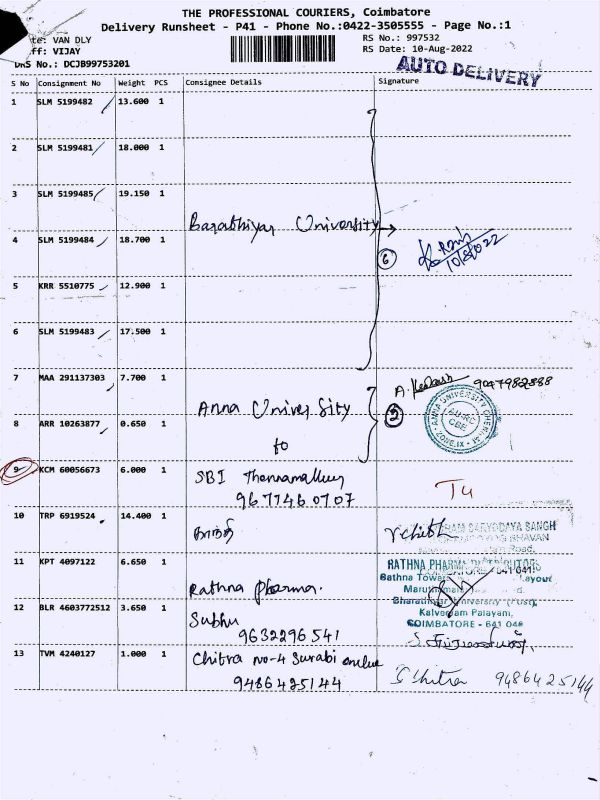 THE PROFESSIONAL COURIERS, Coimbatore
Delivery Runsheet - P41 - Phone No.:0422-3505555 - Page No.:1
te: VAN DLY
ff: VIJAY
DRS No.: DCJB99753201
RS No.: 997532
RS Date: 10-Aug-2022
AUTO DELIVERY
S No Consignment No Weight PCS Consignee Details Signature
1 SLM 5199482 13.600 1
2 SLM 5199481 18.000 1
3 SLM 5199485 19.150 1
Barathiyar University
4 SLM 5199484 18.700 1
6
10/8/2022
5 KRR 5510775 12.900 1
6 SLM 5199483 17.500 1
7 MAA 291137303 7.700 1
Anna University
2
A. 9047982888
ANNA UNIVERSITY CHENNAI
AU-RC
CBE
8 ARR 10263877 0.650 1
to
9 KCM 60056673 6.000 1
SBI
9677460707
10 TRP 6919524 14.400 1
காந்தி
SARVODAYA SANGH
BHAVAN
Road,
11 KPT 4097122 6.650 1
Rathna pharma.
RATHNA PHARMA DISTRIBUTORS
Rathna Towers Layout
University (Post),
Kalveeram Palayam,
COIMBATORE - 641 046
12 BLR 4603772512 3.650 1
Subhu
9632296541
13 TVM 4240127 1.000 1
Chitra no-4 Surabi
9486425144
S Chitra 9486425144